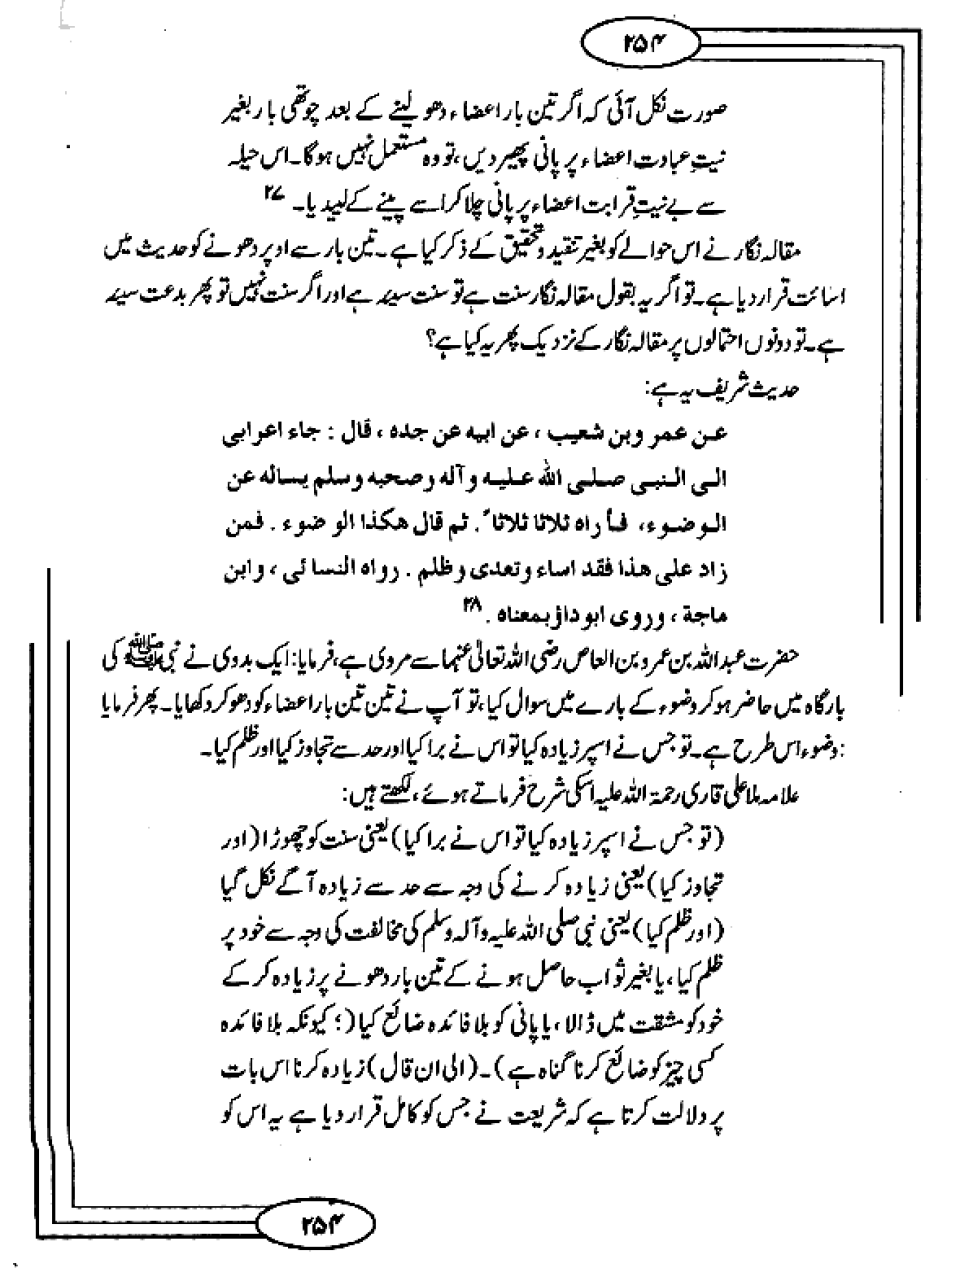 ۲۵۴
صورت نکل آئی کہ اگر تین بار اعضاء دھو لینے کے بعد چوتھی بار بغیر
نیتِ عبادت اعضاء پر پانی پھیر دیں، تو وہ مستعمل نہیں ہوگا۔ اس حیلہ
سے بے نیتِ قرابت اعضاء پر پانی چلا کر اسے پینے کے لیے دیا۔ ۲۷
مقالہ نگار نے اس حوالے کو بغیر تنقید و تحقیق کے ذکر کیا ہے۔ تین بار سے اوپر دھونے کو حدیث میں
اسائت قرار دیا ہے۔ تو اگر یہ بقول مقالہ نگار سنت ہے تو سنت سیئہ ہے اور اگر سنت نہیں تو پھر بدعت سیئہ
ہے۔ تو دونوں احتمالوں پر مقالہ نگار کے نزدیک پھر یہ کیا ہے؟
حدیث شریف یہ ہے:
عن عمر وبن شعیب، عن ابیه عن جده، قال: جاء اعرابی
الی النبی صلی اللہ علیه وآله وصحبه وسلم یساله عن
الوضوء، فأراه ثلاثا ثلاثا ً. ثم قال هکذا الوضوء. فمن
زاد علی هذا فقد اساء وتعدی وظلم. رواه النسائی، وابن
ماجة، وروی ابوداؤ بمعناه. ۲۸
حضرت عبداللہ بن عمرو بن العاص رضی اللہ تعالیٰ عنہما سے مروی ہے، فرمایا: ایک بدوی نے نبی ﷺ کی
بارگاہ میں حاضر ہو کر وضوء کے بارے میں سوال کیا، تو آپ نے تین تین بار اعضاء کو دھو کر دکھایا۔ پھر فرمایا
: وضوء اس طرح ہے۔ تو جس نے اسپر زیادہ کیا تو اس نے برا کیا اور حد سے تجاوز کیا اور ظلم کیا۔
علامہ ملا علی قاری رحمۃ اللہ علیہ اسکی شرح فرماتے ہوئے، لکھتے ہیں:
(تو جس نے اسپر زیادہ کیا تو اس نے برا کیا) یعنی سنت کو چھوڑا (اور
تجاوز کیا) یعنی زیادہ کرنے کی وجہ سے حد سے زیادہ آگے نکل گیا
(اور ظلم کیا) یعنی نبی صلی اللہ علیہ وآلہ وسلم کی مخالفت کی وجہ سے خود پر
ظلم کیا، یا بغیر ثواب حاصل ہونے کے تین بار دھونے پر زیادہ کر کے
خود کو مشقت میں ڈالا، یا پانی کو بلا فائدہ ضائع کیا (؛ کیونکہ بلا فائدہ
کسی چیز کو ضائع کرنا گناہ ہے)۔ (الی ان قال) زیادہ کرنا اس بات
پر دلالت کرتا ہے کہ شریعت نے جس کو کامل قرار دیا ہے یہ اس کو
۲۵۴